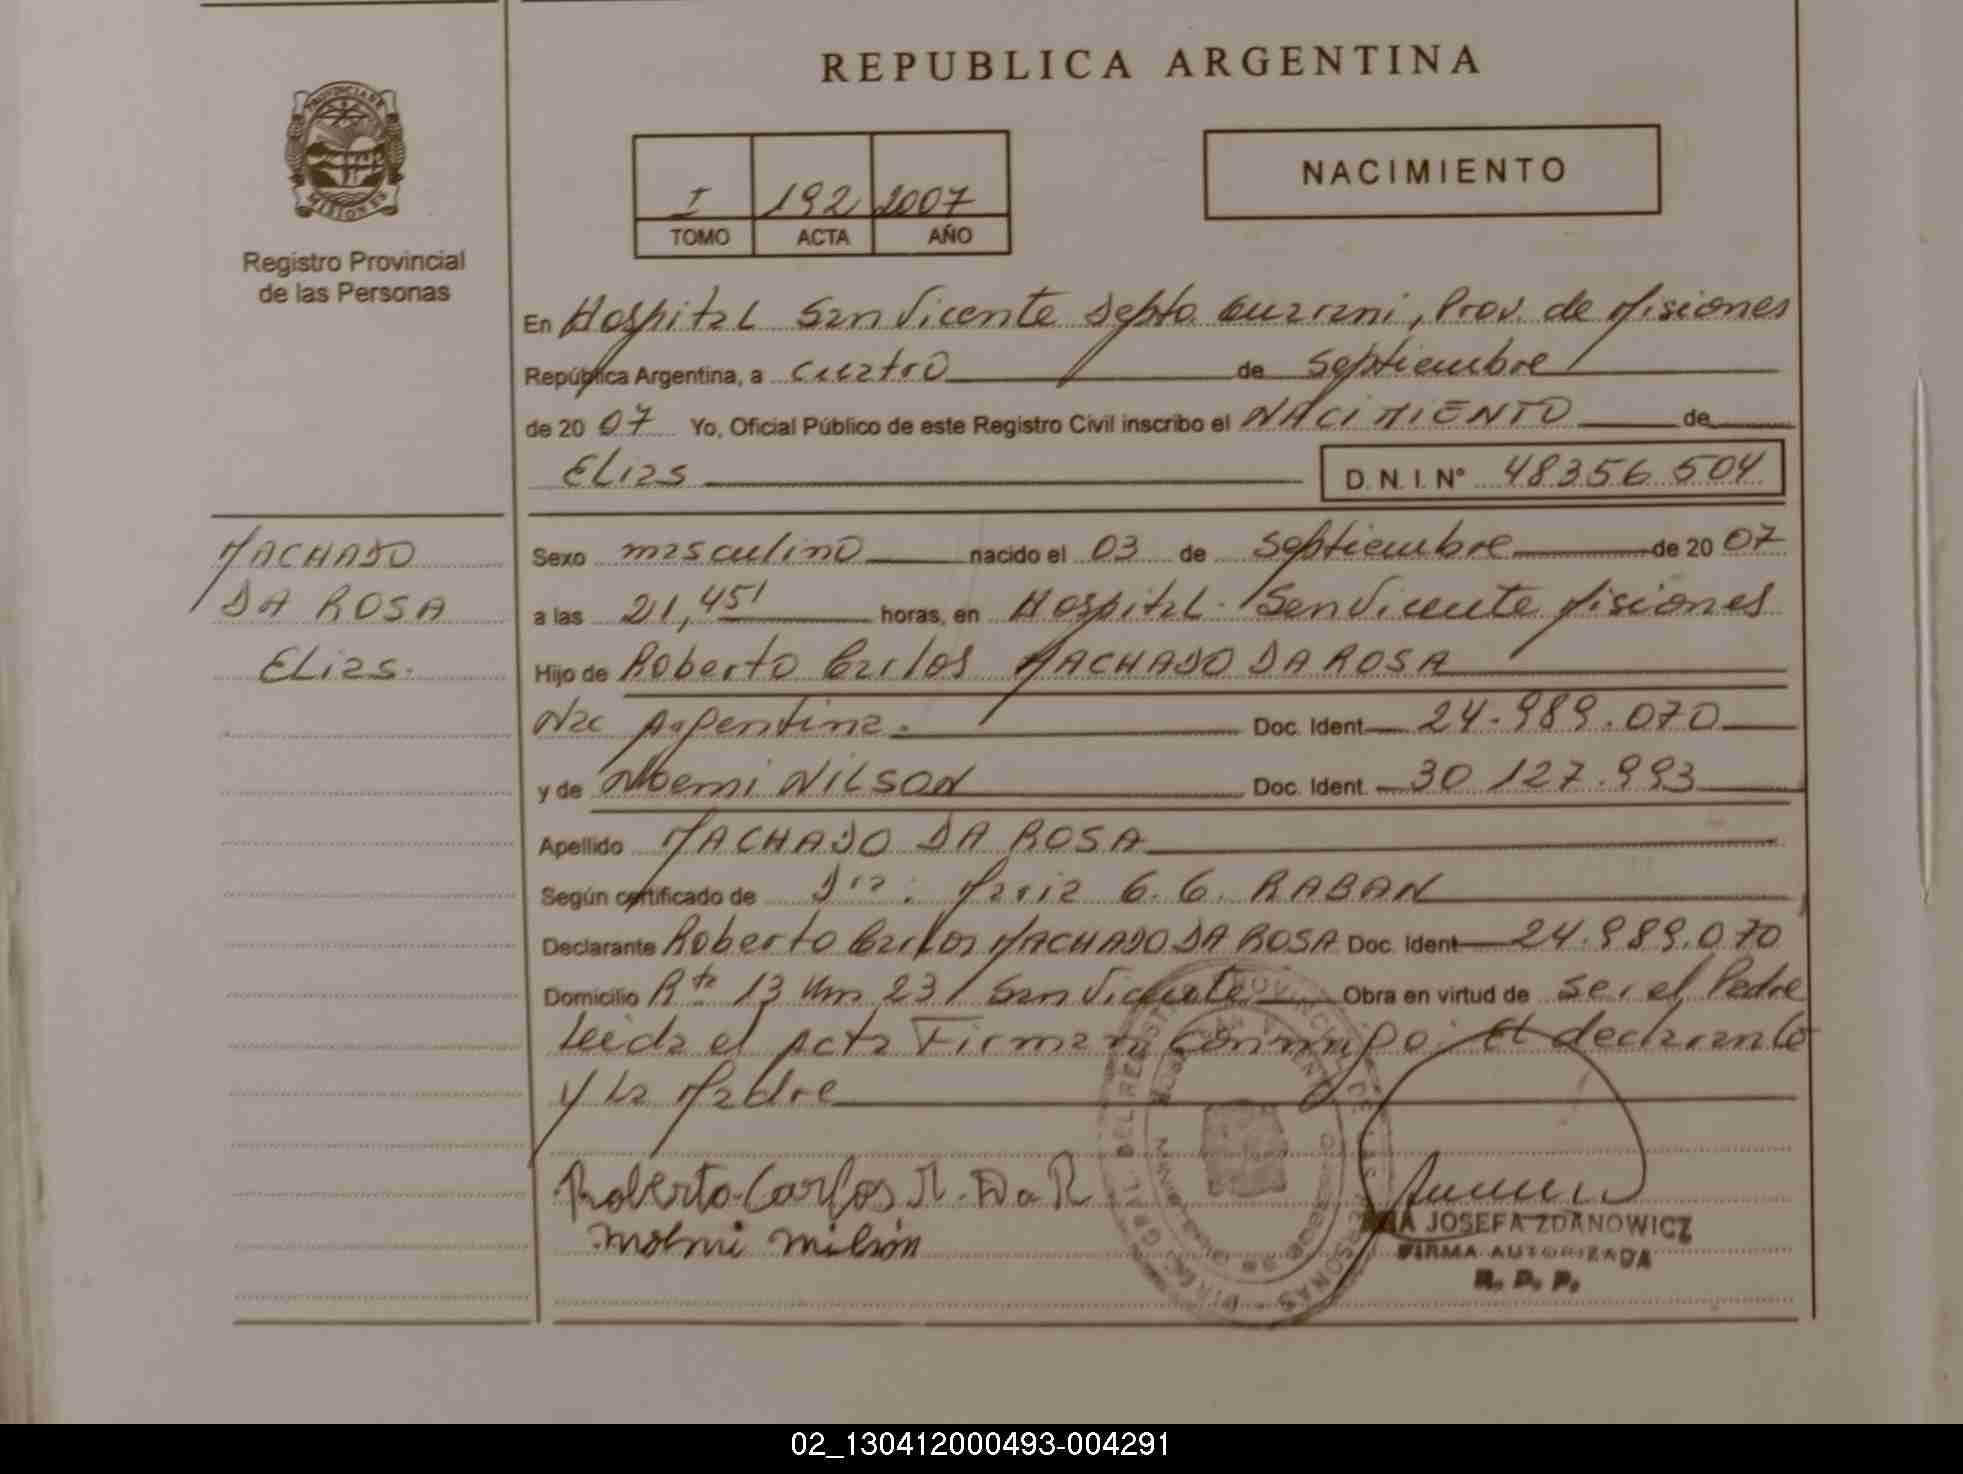 REPUBLICA ARGENTINA
PROVINCIA DE
MISIONES
Registro Provincial
de las Personas
NACIMIENTO
I 192 2007
TOMO ACTA AÑO
En Hospital San Vicente Depto Guarani, Prov. de Misiones
República Argentina, a cuatro de Septiembre
de 2007 Yo, Oficial Público de este Registro Civil inscribo el NACIMIENTO de
Elias D. N. I. Nº 48356504
MACHADO
DA ROSA
Elias.
Sexo masculino nacido el 03 de Septiembre de 2007
a las 21,45' horas, en Hospital San Vicente Misiones
Hijo de Roberto Carlos MACHADO DA ROSA
Nac Argentina. Doc. Ident. 24.989.070
y de Noemi NILSON Doc. Ident. 30.127.993
Apellido MACHADO DA ROSA
Según certificado de Dra: Maria G. G. RABAN
Declarante Roberto Carlos MACHADO DA ROSA Doc. Ident. 24.989.070
Domicilio Rta 13 Km 23 San Vicente Obra en virtud de ser el Padre
Leida el Acta Firman Conmigo: El declarante
y La Madre
Roberto Carlos M. Da R
JOSEFA ZDANOWICZ
FIRMA AUTORIZADA
R. P. P.
02_130412000493-004291